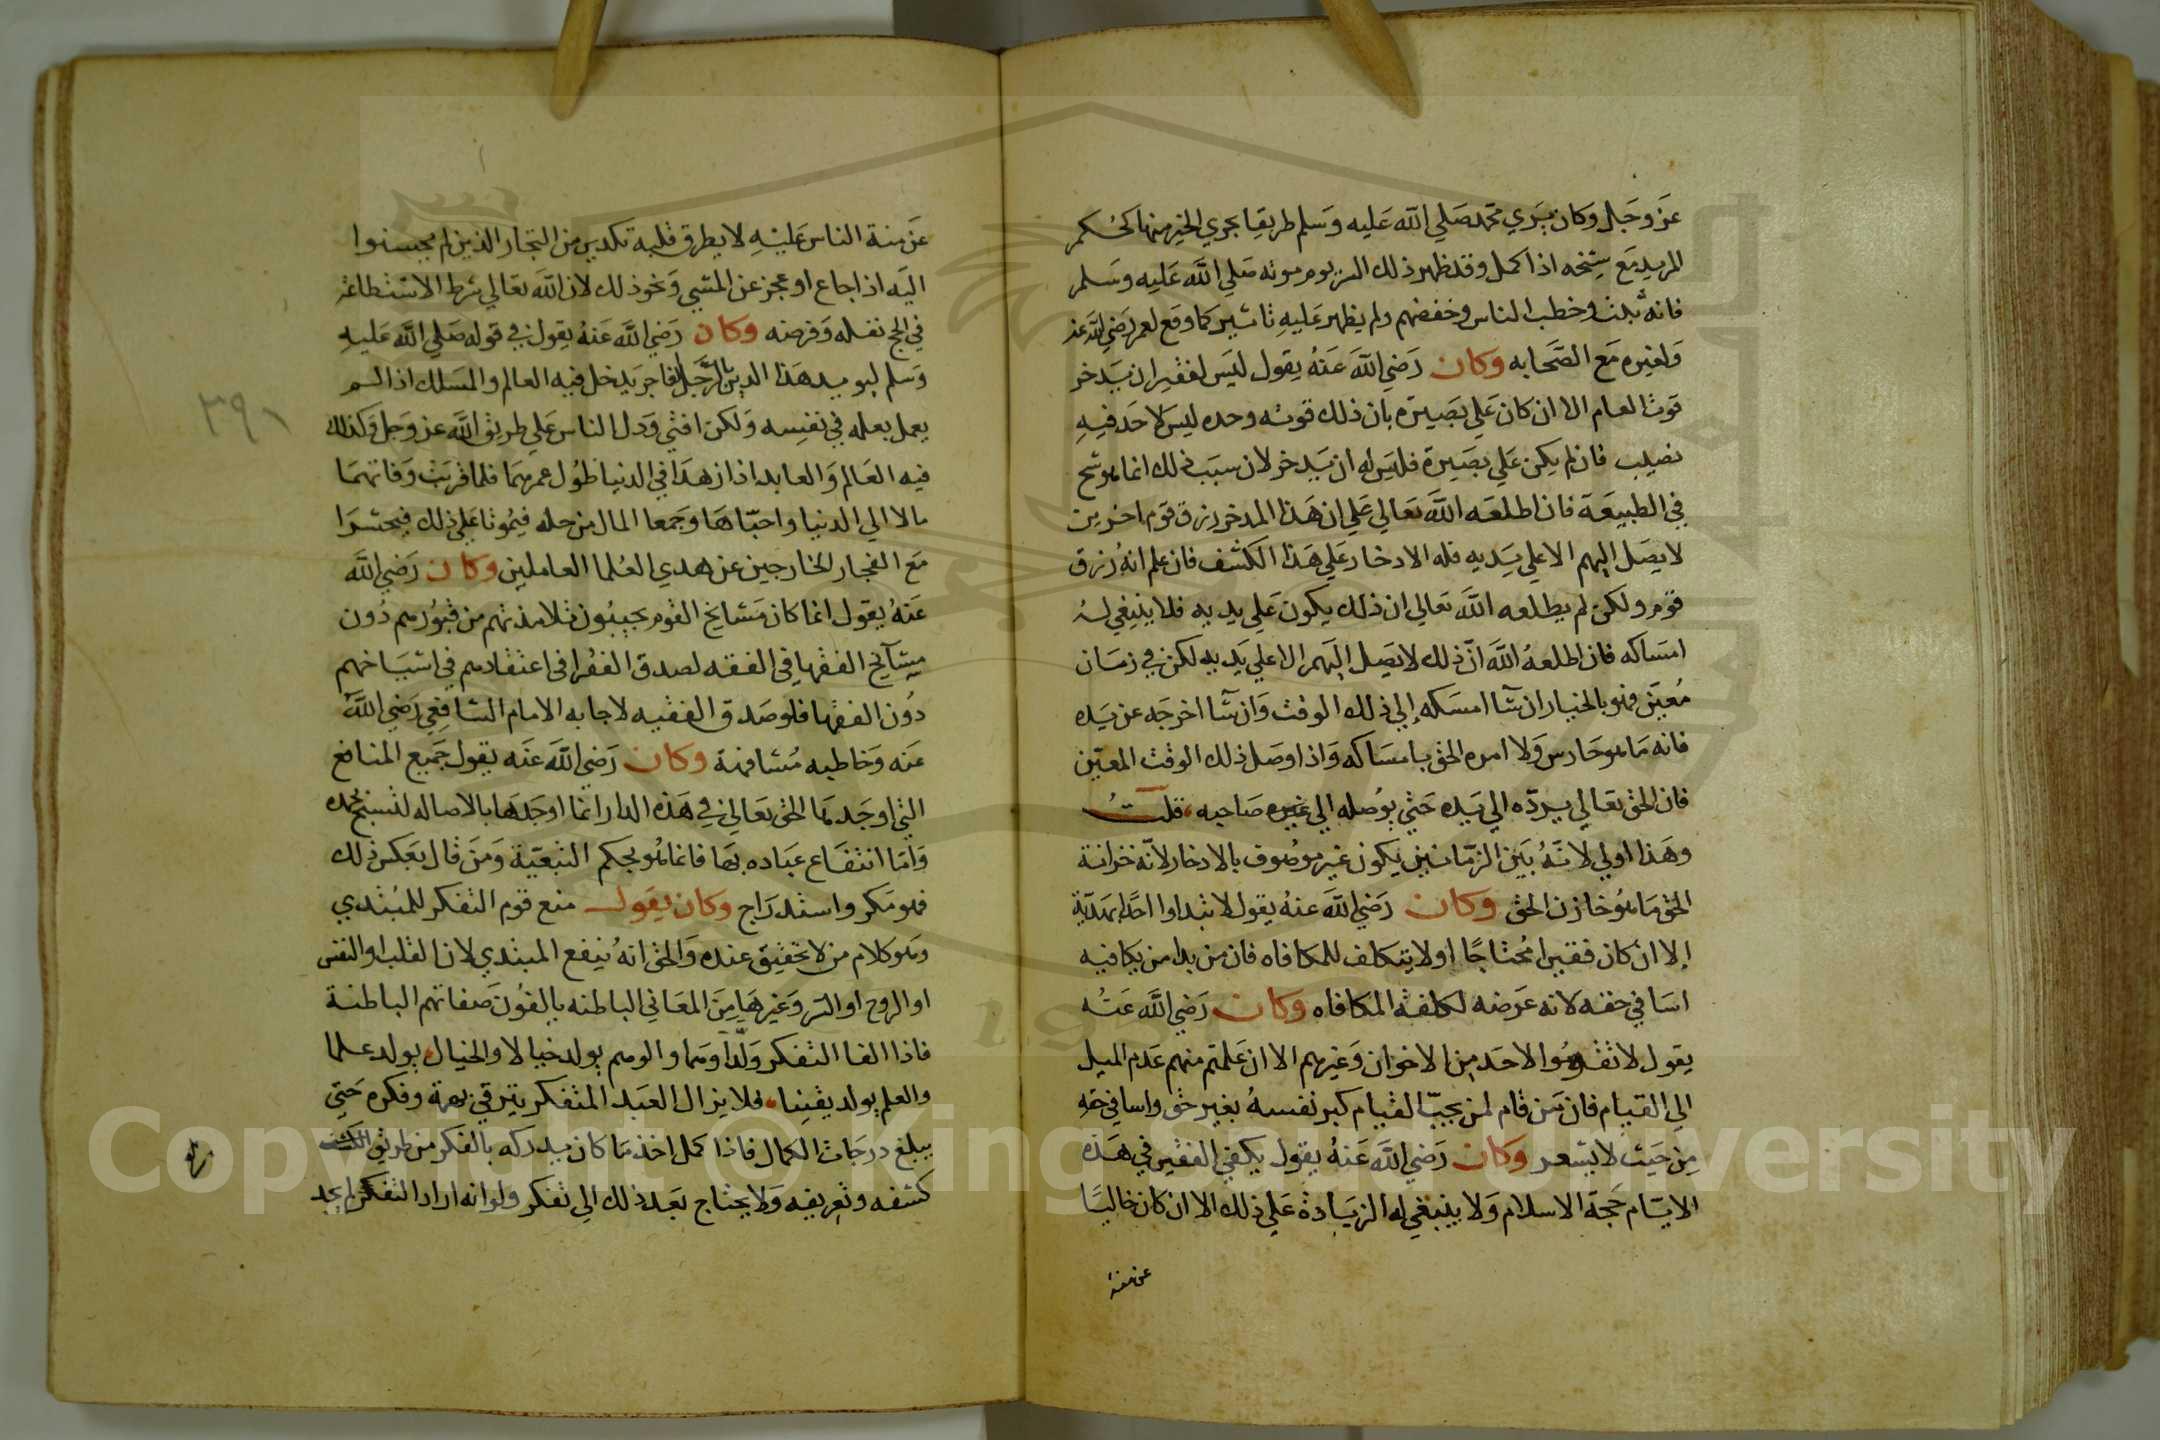 عز وجل وكان يري محمد صلي الله عليه وسلم طريقا يجري الخير منها كحكم
المريد مع شيخه اذا كمل وقد ظهر ذلك يوم موته صلي الله عليه وسلم
فانه ثبت وخطب الناس وخفضهم ولم يظهر عليه تاثير كما وقع لعمر رضي الله عنه
ولغيره مع الصحابه وكان رضي الله عنه يقول ليس لفقير ان يدخر
قوت العام الا ان كان علي بصيرة بان ذلك قوته وحده ليس لاحد فيه
نصيب فان لم يكن علي بصيرة فليس له ان يدخر لان سبب ذلك انما هو شح
في الطبيعة فان اطلعه الله تعالي علي ان هذا المدخر رزق قوم اخرين
لا يصل اليهم الا علي يديه فله الادخار علي هذا الكشف فان علم انه رزق
قوم ولكن لم يطلعه الله تعالي ان ذلك يكون علي يديه فلا ينبغي له
امساكه فان اطلعه الله ان ذلك لا يصل اليهم الا علي يديه لكن في زمان
معين فهو بالخيار ان شا امسكه إلي ذلك الوقت وان شا اخرجه عن يده
فانه ما هو حارس ولا امره الحق بامساكه واذا وصل ذلك الوقت المعين
فان الحق تعالي يرده الي يده حتي يوصله الي غيره صاحبه قلت
وهذا اولي لانه بين الزمانين يكون غير موصوف بالادخار لانه خزانة
الحق ما هو خازن الحق وكان رضي الله عنه يقول لا تبداوا احدا بهدية
إلا ان كان فقيرا محتاجا اولا يتكلف للمكافاه فان من بدا من يكافيه
اسا في حقه لانه عرضه لكلفة المكافاه وكان رضي الله عنه
يقول لا تقوموا لاحد من الاخوان وغيرهم الا ان علمتم منهم عدم الميل
الي القيام فان من قام لمن يحب القيام كبر نفسه بغير حق واسا في حقه
من حيث لا يشعر وكان رضي الله عنه يقول يكفي الفقير في هذه
الايام حجة الاسلام ولا ينبغي له الزيادة علي ذلك الا ان كان خاليا
عن منة
عن منة الناس عليه لا يطرق قلبه تكدير من التجار الذين لم يحسنوا
اليه اذا جاع او عجز عن المشي ونحو ذلك لان الله تعالي شرط الاستطاعة
في الحج نفله وفرضه وكان رضي الله عنه يقول في قوله صلي الله عليه
وسلم ليويد هذا الدين بالرجل الفاجر يدخل فيه العالم والمسلك اذا لم
يعمل بعلمه في نفسه ولكن افتي ودل الناس علي طريق الله عز وجل وكذلك
فيه العالم والعابد اذا زهدا في الدنيا طول عمرهما فلما قربت وفاتهما
مالا الي الدنيا واحباها وجمعا المال من حله فيموتا علي ذلك فيحشرا
مع الفجار الخارجين عن هدي العلما العاملين وكان رضي الله
عنه يقول انما كان مشايخ القوم يجيبون تلامذتهم من قبورهم دون
مشايخ الفقها في الفقه لصدق الفقرا في اعتقادهم في اشياخهم
دون الفقها فلو صدق الفقيه لاجابه الامام الشافعي رضي الله
عنه وخاطبه مشافهة وكان رضي الله عنه يقول جميع المنافع
التي اوجدها الحق تعالي في هذه الدار انما اوجدها بالاصاله لتسبح بحمده
واما انتفاع عباده بها فانما هو بحكم التبعية ومن قال بعكس ذلك
فهو مكر واستدراج وكان يقول منع قوم التفكر للمبتدي
وهو كلام من لا تحقيق عنده والحق انه ينفع المبتدي لان القلب او النفس
او الروح او السر وغيرها من المعاني الباطنه يالفون صفاتهم الباطنة
فاذا الفا التفكر ولدا وهما والوهم يولد خيالا والخيال يولد علما
والعلم يولد يقينا فلا يزال العبد المتفكر يترقي بهمة وفكره حتي
يبلغ درجات الكمال فاذا كمل اخذ ما كان يدركه بالفكر من طريق الكشف
كشفه وتعريفه ولا يحتاج بعد ذلك الي تفكر ولو انه اراد التفكر لم يجد
٣٩١
Copyright © King Saud University